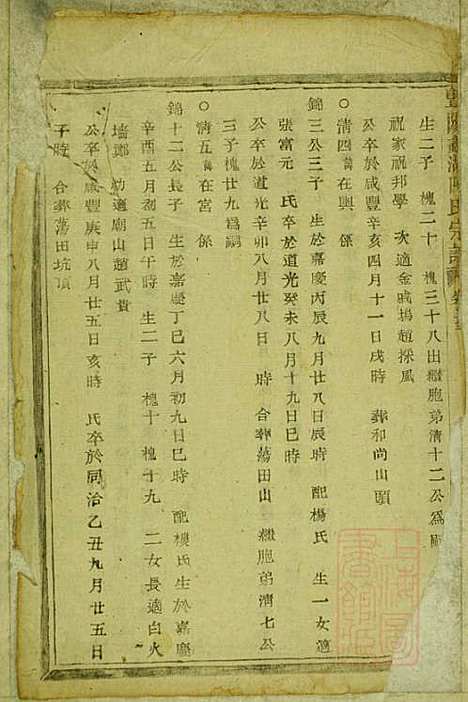 氏宗譜
生二子 槐二十 槐三十八出繼胞弟清十二公為嗣
祝家祝邦學 次適金嶺塢趙採風
公卒於咸豐辛亥四月十一日戌時 葬和尚山頭
○清四諱在興 係
錦三公三子 生於嘉慶丙辰九月廿八日辰時 配楊氏 生一女適
張富元 氏卒於道光癸未八月十九日巳時
公卒於道光辛卯八月廿八日 時 合葬蕩田山 繼胞弟清七公
三子槐廿九為嗣
○清五諱在宮 係
錦十二公長子 生於嘉慶丁巳六月初九日巳時 配樓氏生於嘉慶
辛酉五月初五日午時 生二子 槐十 槐十九 二女長適白火
墻鄧 幼適廟山趙武貴
公卒於咸豐庚申八月廿五日亥時 氏卒於同治乙丑九月廿五日
子時 合葬蕩田坑頂